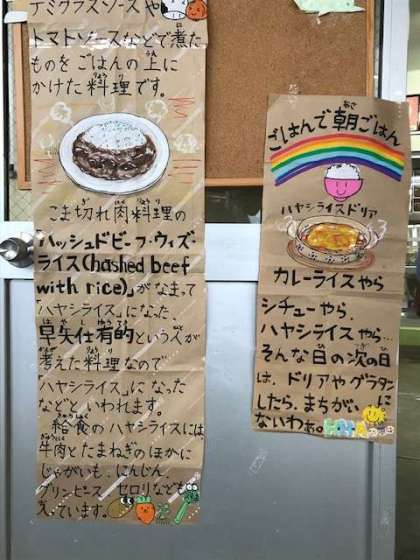 デミグラスソースや
トマトソースなどで煮た
ものをごはんの上に
かけた料理です。
こま切れ肉料理の
「ハッシュドビーフ・ウィズ・
ライス(hashed beef
with rice)」がなまって
「ハヤシライス」になった、
早矢仕有的という人が
考えた料理なので
「ハヤシライス」になった
などといわれます。
給食のハヤシライスには、
牛肉とたまねぎのほかに
じゃがいも、にんじん、
グリンピース、セロリなども
入っています。
ごはんで朝ごはん
ハヤシライスドリア
カレーライスやら
シチューやら、
ハヤシライスやら…
そんな日の次の日
は、ドリアやグラタンに
したら、まちがい
ないわぁ。